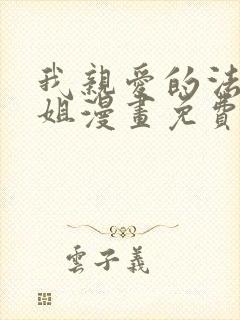 我親愛的法
姐漫畫免費
雲子義